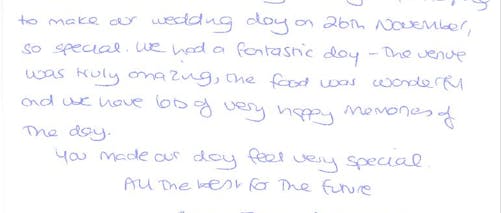 to make our wedding day on 26th November,
so special. We had a fantastic day - The venue
was truly amazing, the food was wonderful
and we have lots of very happy memories of
The day.
You made our day feel very special.
All The best for The future